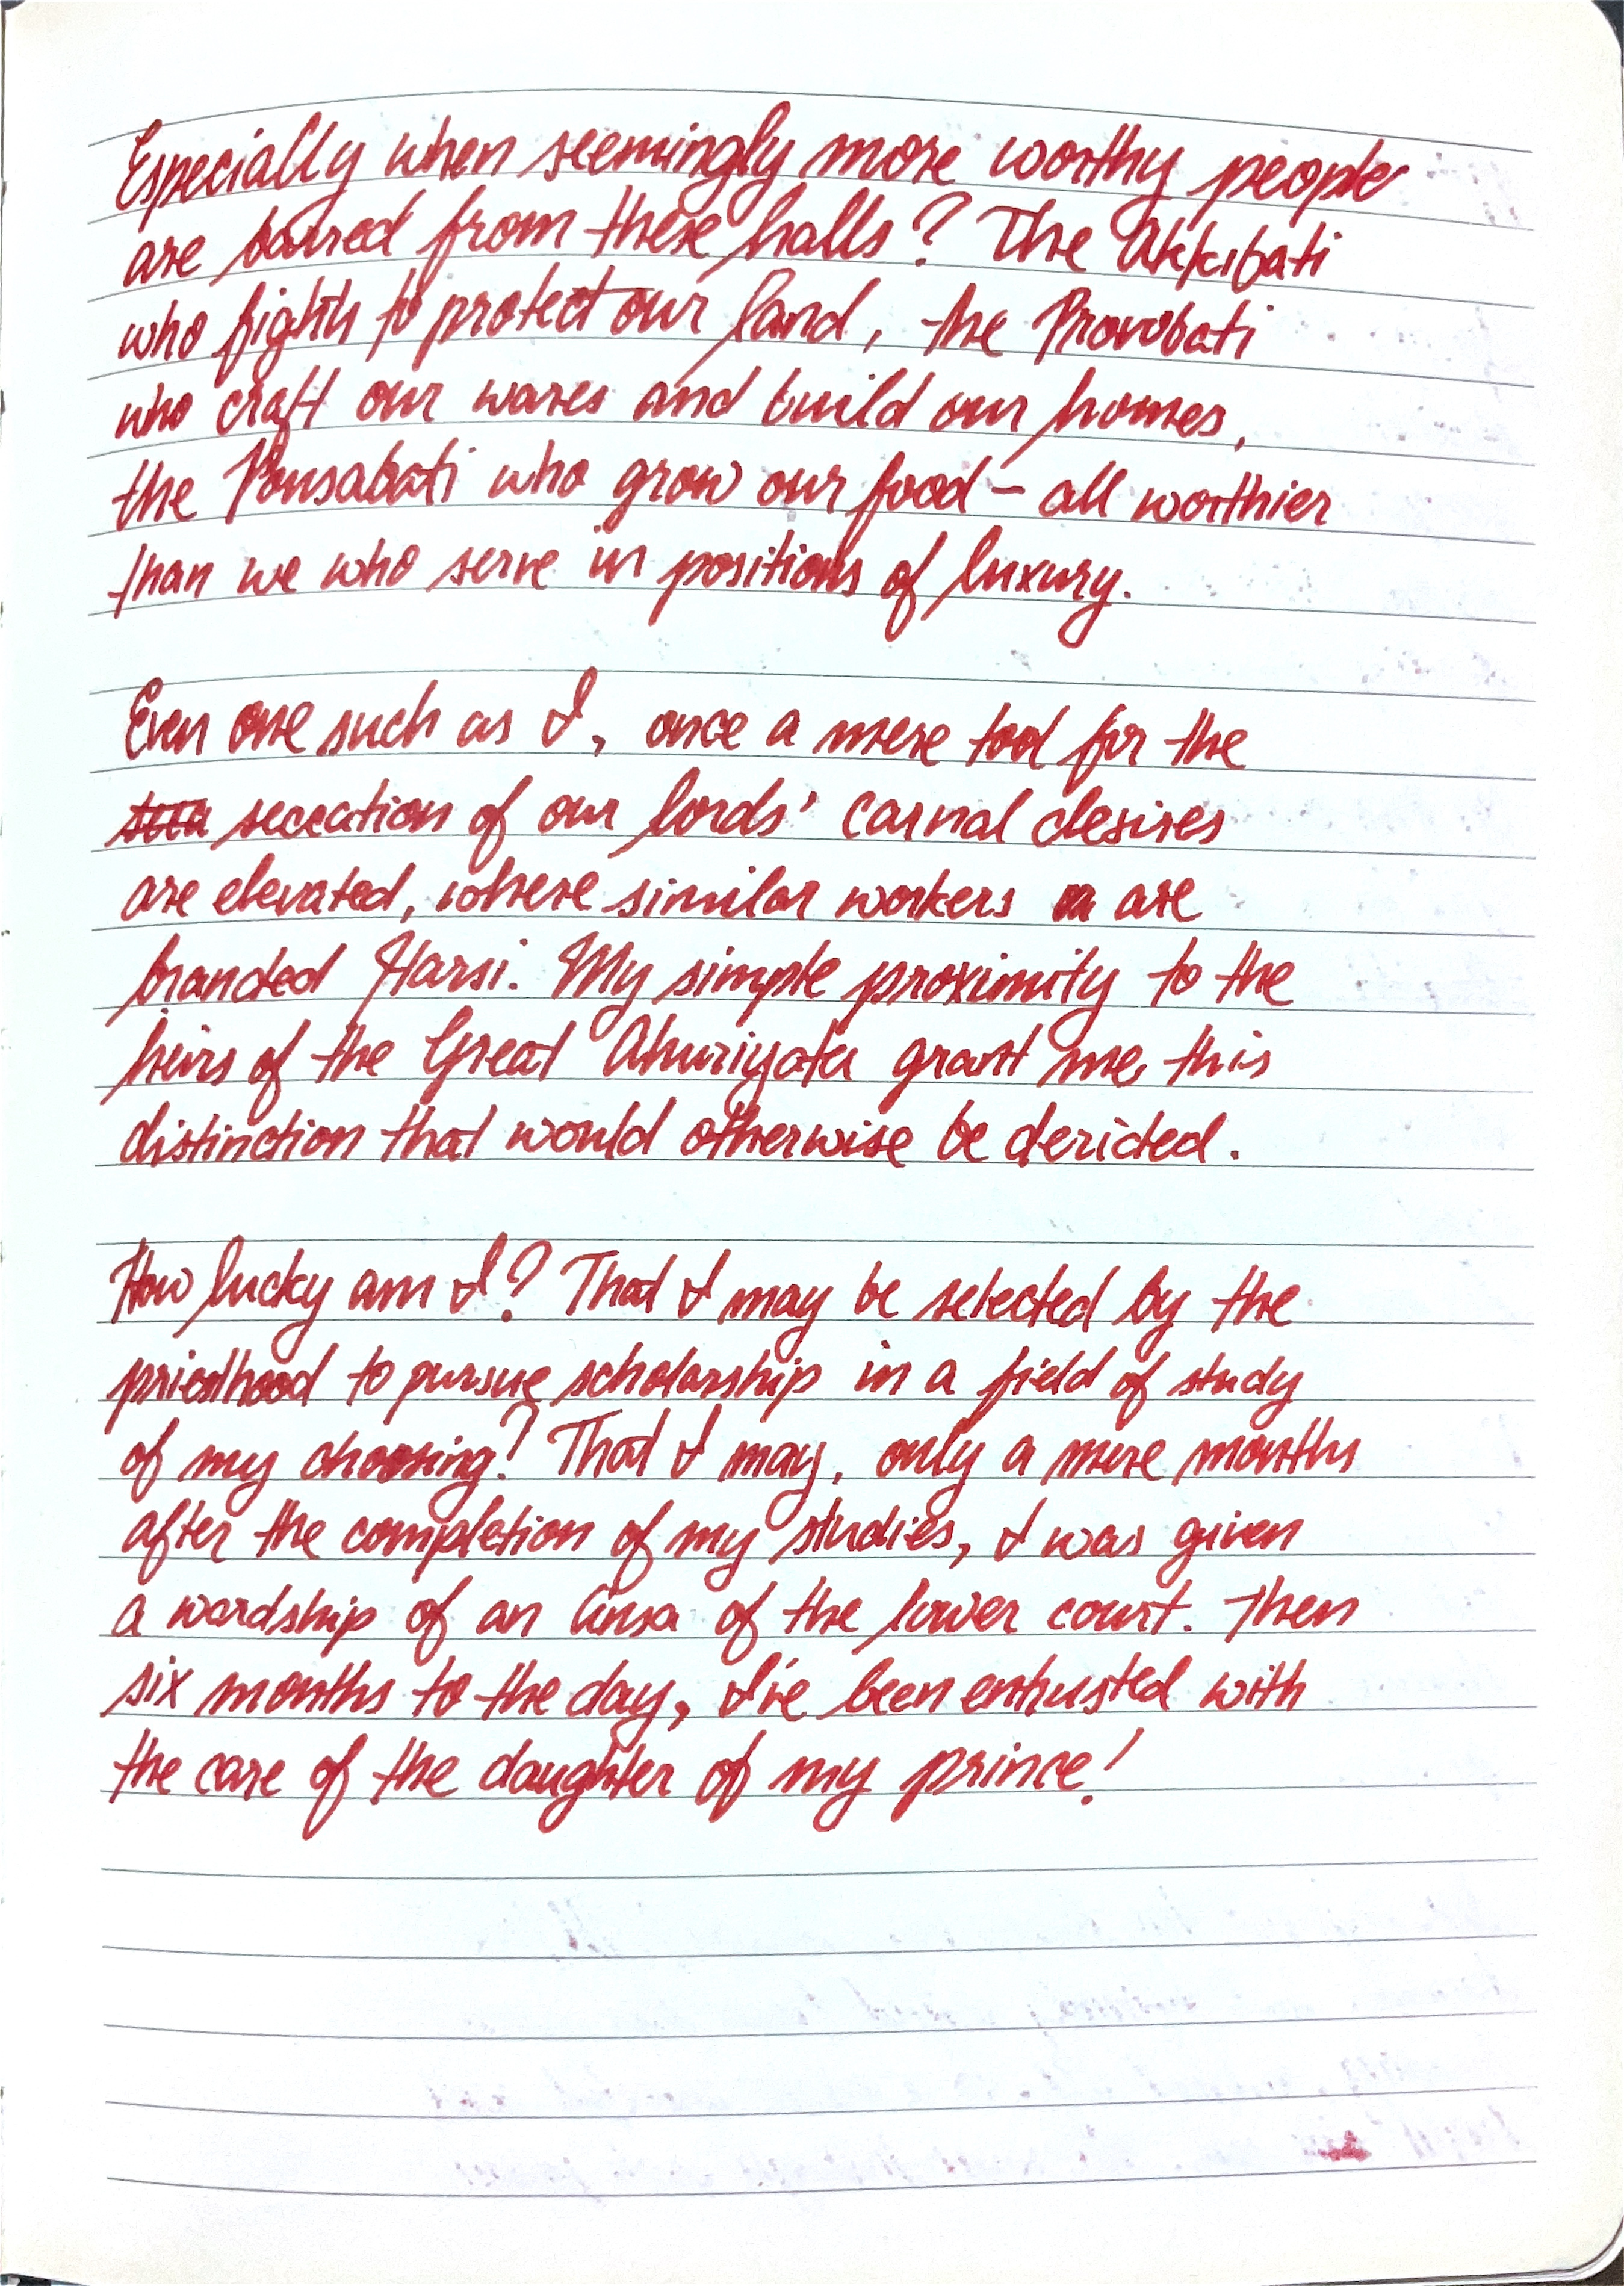 Especially when seemingly more worthy people
are barred from these halls? The Akkibati
who fights to protect our land, the Provobati
who craft our wares and build our homes,
the Ponsabati who grow our food – all worthier
than we who serve in positions of luxury.
Even one such as I, once a mere tool for the
seccation of our lords' carnal desires
are elevated, where similar workers are
branded Harsi. My simple proximity to the
heirs of the Great Ahuriyata grant me this
distinction that would otherwise be derided.
How lucky am I? That I may be selected by the
priesthood to pursue scholarship in a field of study
of my choosing? That I may, only a mere months
after the completion of my studies, I was given
a wardship of an Ansa of the lower court. Then
six months to the day, I've been entrusted with
the care of the daughter of my prince!